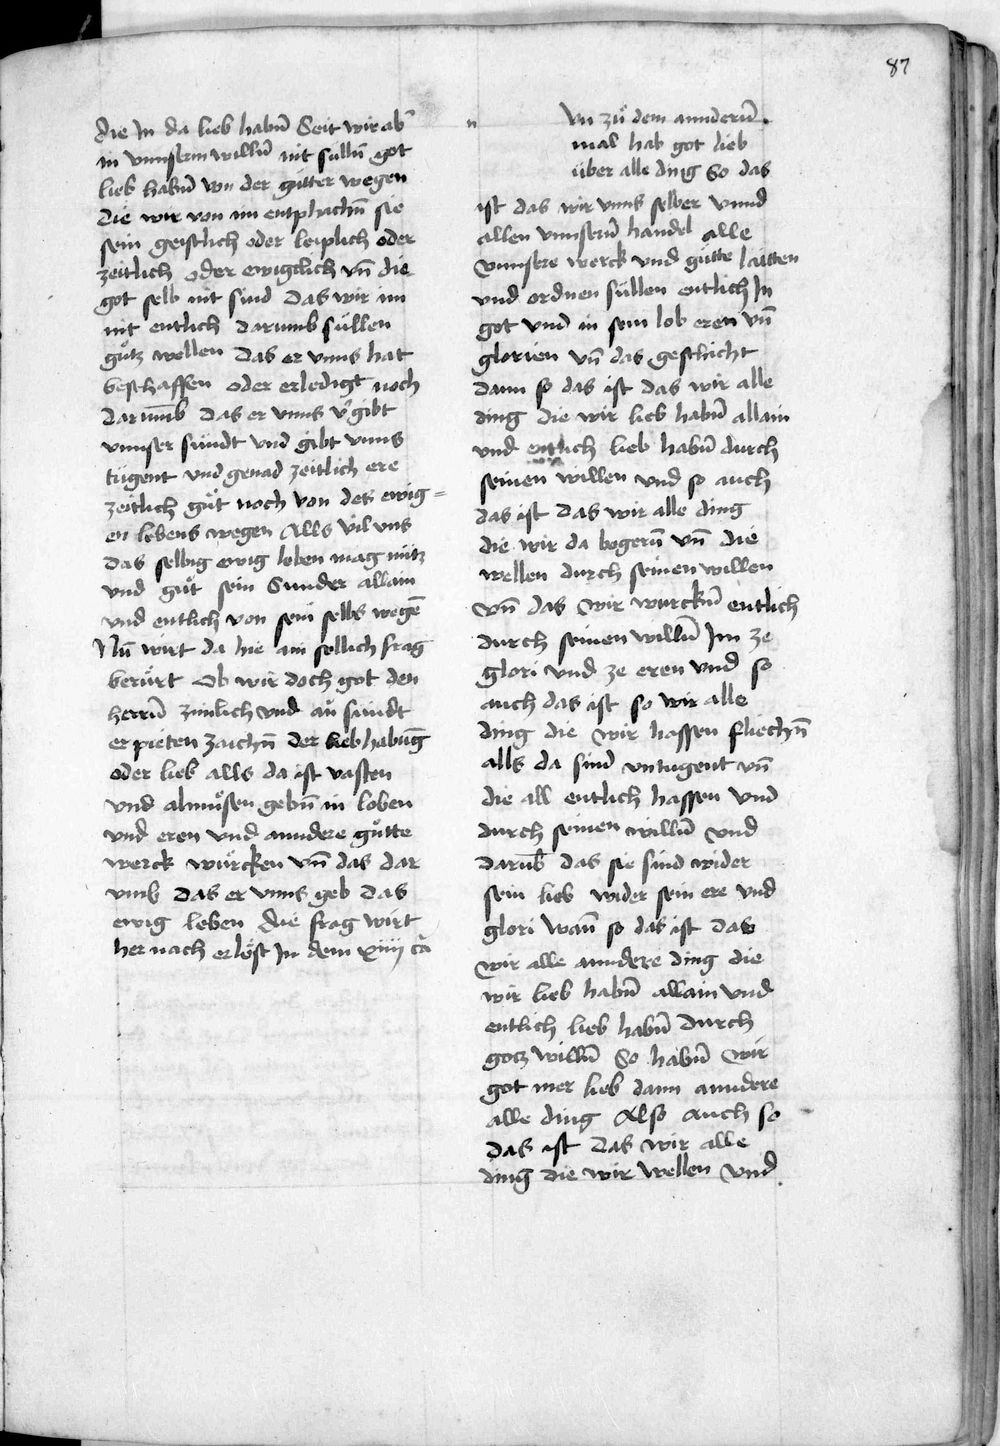 87
die In da lieb habn̄ Seit wir ab̄
in vnnserm willn̄ nit sülln̄ got
lieb habn̄ von der gütter wegen
die wir von im entphachn̄ sie
sein geistlich oder leiplich oder
zeitlich oder ewigclich vn̄ die
got selb nit sind Das wir im
nit entlich darumb süllen
gůtz wellen Das er vnns hat
beschaffen oder erledigt noch
darumb das er vnns v̄gibt
vnnser sündt vnd gibt vnns
tugent vnd genad zeitlich ere
zeitlich gůt noch von des ewig=
en lebens wegen Alls vil vns
das selbig ewig leben mag nütz
vnd gůt sein Sunder allain
vnd entlich von sein selbs wegē
Nun̄ wirt da hie ain sollich frag
berürt Ob wir doch got den
herrn̄ zimlich vnd an sündt
erpieten zaichn̄ der liebhabūg
oder lieb alls da ist vasten
vnd almůsen gebn̄ in loben
vnd eren vnd anndere gůtte
werck würcken vn̄ das dar
vmb das er vnns geb das
ewig leben die frag wirt
her nach erlöst In dem xiiij ca
n
Vn zů dem anndern̄
mal hab got lieb
über alle ding So das
ist das wir vnns selber vnnd
allen vnnsern̄ handel alle
vnnsere werck vnd gütte laitten
vnd ordnen süllen entlich In
got vnd in sein lob eren vn̄
glorien vn̄ das geschicht
dann so das ist das wir alle
ding die wir lieb habn̄ allain
vnd entlich lieb habn̄ durch
seinen willen vnd so auch
das ist das wir alle ding
die wir da begern̄ vn̄ die
wellen durch seinen willen
vn̄ das wir wurckn̄ entlich
durch seinen willn̄ Im ze
glori vnd ze eren vnd so
auch das ist so wir alle
ding die wir hassen fliechn̄
alls da sind vntugent vn̄
die all entlich hassen vnd
durch seinen willn̄ vnd
darub̄ das sie sind wider
sein lieb wider sein ere vnd
glori wan̄ so das ist das
wir alle anndere ding die
wir lieb habn̄ allain vnd
entlich lieb habn̄ durch
gotz willn̄ So habn̄ wir
got mer lieb dann anndere
alle ding Also auch so
das ist das wir alle
ding die wir wellen vnd